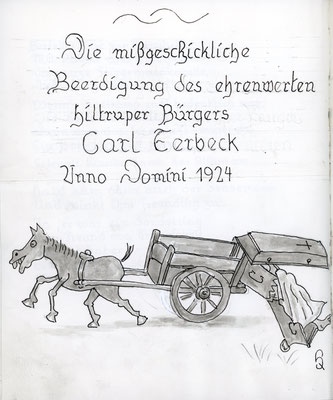 Die mißgeschickliche
Beerdigung des ehrenwerten
hiltruper Bürgers
Carl Eerbeck
Anno Domini 1924